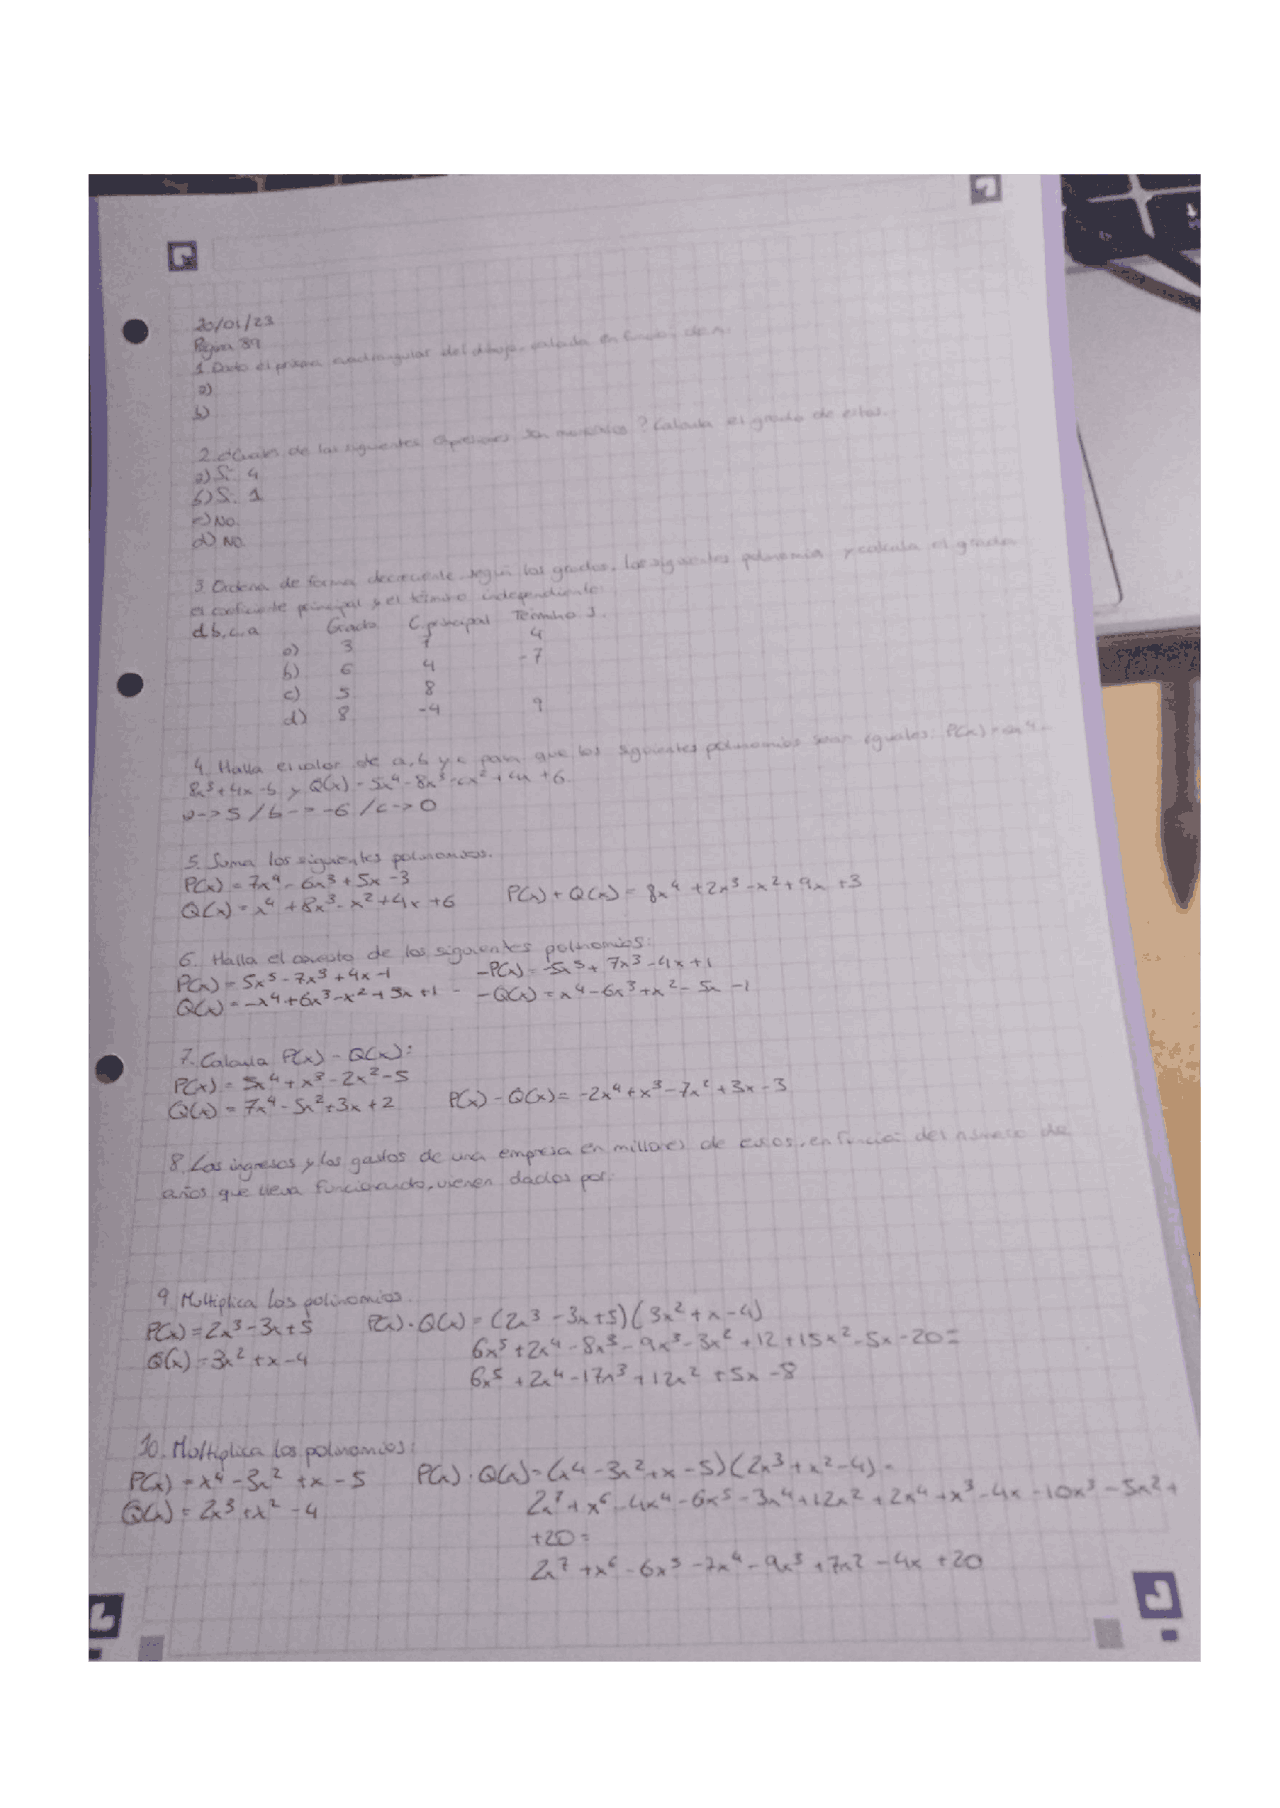 20/01/23
Página 39
1. Dado el prisma cuadrangular del dibujo, calcula en función de x.
a)
b)
2. ¿Cuáles de las siguientes expresiones son monomios? Calcula el grado de estos.
a) Sí. 4
b) Sí. 1
c) No.
d) No.
3. Ordena de forma decreciente, según los grados, los siguientes polinomios y calcula el grado
el coeficiente principal y el término independiente:
d, b, c, a Grado C. principal Término I.
a) 3 7 4
b) 6 4 -7
c) 5 8
d) 8 -4 9
4. Halla el valor de a, b y c para que los siguientes polinomios sean iguales. P(x) = ax⁴-
8x³+4x-b y Q(x) = 5x⁴-8x³-cx²+4x+6
a->5 / b-> -6 / c-> 0
5. Suma los siguientes polinomios.
P(x) = 7x⁴ - 6x³ + 5x - 3
Q(x) = x⁴ + 8x³ - x² + 4x + 6 P(x) + Q(x) = 8x⁴ + 2x³ - x² + 9x + 3
6. Halla el opuesto de los siguientes polinomios:
P(x) = 5x⁵ - 7x³ + 4x - 1 -P(x) = -5x⁵ + 7x³ - 4x + 1
Q(x) = -x⁴ + 6x³ - x² + 5x + 1 - -Q(x) = x⁴ - 6x³ + x² - 5x - 1
7. Calcula P(x) - Q(x):
P(x) = 5x⁴ + x³ - 2x² - 5
Q(x) = 7x⁴ - 5x² + 3x + 2 P(x) - Q(x) = -2x⁴ + x³ - 7x² + 3x - 3
8. Los ingresos y los gastos de una empresa en millones de euros, en función del número de
años que lleva funcionando, vienen dados por:
9. Multiplica los polinomios.
P(x) = 2x³ - 3x + 5 P(x) · Q(x) = (2x³ - 3x + 5)(3x² + x - 4)
Q(x) = 3x² + x - 4 6x⁵ + 2x⁴ - 8x³ - 9x³ - 3x² + 12 + 15x² - 5x - 20 =
6x⁵ + 2x⁴ - 17x³ + 12x² + 5x - 8
10. Multiplica los polinomios:
P(x) = x⁴ - 3x² + x - 5 P(x) · Q(x) = (x⁴ - 3x² + x - 5)(2x³ + x² - 4) =
Q(x) = 2x³ + x² - 4 2x⁷ + x⁶ - 4x⁴ - 6x⁵ - 3x⁴ + 12x² + 2x⁴ + x³ - 4x - 10x³ - 5x² +
+20 =
2x⁷ + x⁶ - 6x⁵ - 7x⁴ - 9x³ + 7x² - 4x + 20